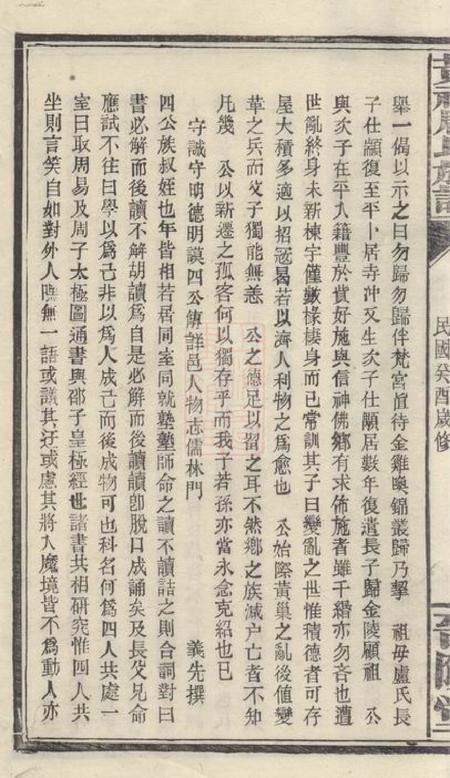 舉一偈以示之曰勿歸勿歸伴梵宮直待金雞喚錦叢歸乃挈　祖毋盧氏長
子仕顓復至平卜居寺冲又生次子仕顒居數年復遣長子歸金陵顧祖　公
與次子在平入籍豐於貲好施與信神佛鄉有求佈施者雖千緡亦勿吝也遭
世亂終身未新棟宇僅數椽棲身而已常訓其子曰變亂之世惟積德者可存
屋大積多適以招冦曷若以濟人利物之爲愈也　公始際黃巢之亂後值變
革之兵而父子獨能無恙　公之德足以留之耳不然鄉之族滅户亡者不知
凡幾　公以新遷之孤客何以獨存乎而我子若孫亦當永念克紹也已
義先撰
守誠守明德明謨四公傳詳邑人物志儒林門
四公族叔姪也年皆相若居同室同就塾塾師命之讀不讀詰之則合詞對曰
書必解而後讀不解胡讀爲自是必解而後讀讀卽脫口成誦矣及長父兄命
應試不往曰學以爲己非以爲人成己而後成物可也科名何爲四人共處一
室日取周易及周子太極圖通書與邵子皇極經世諸書共相研究惟四人共
坐則言笑自如對外人嘿無一語或議其迂或慮其將入魔境皆不爲動人亦
民國癸酉歲修